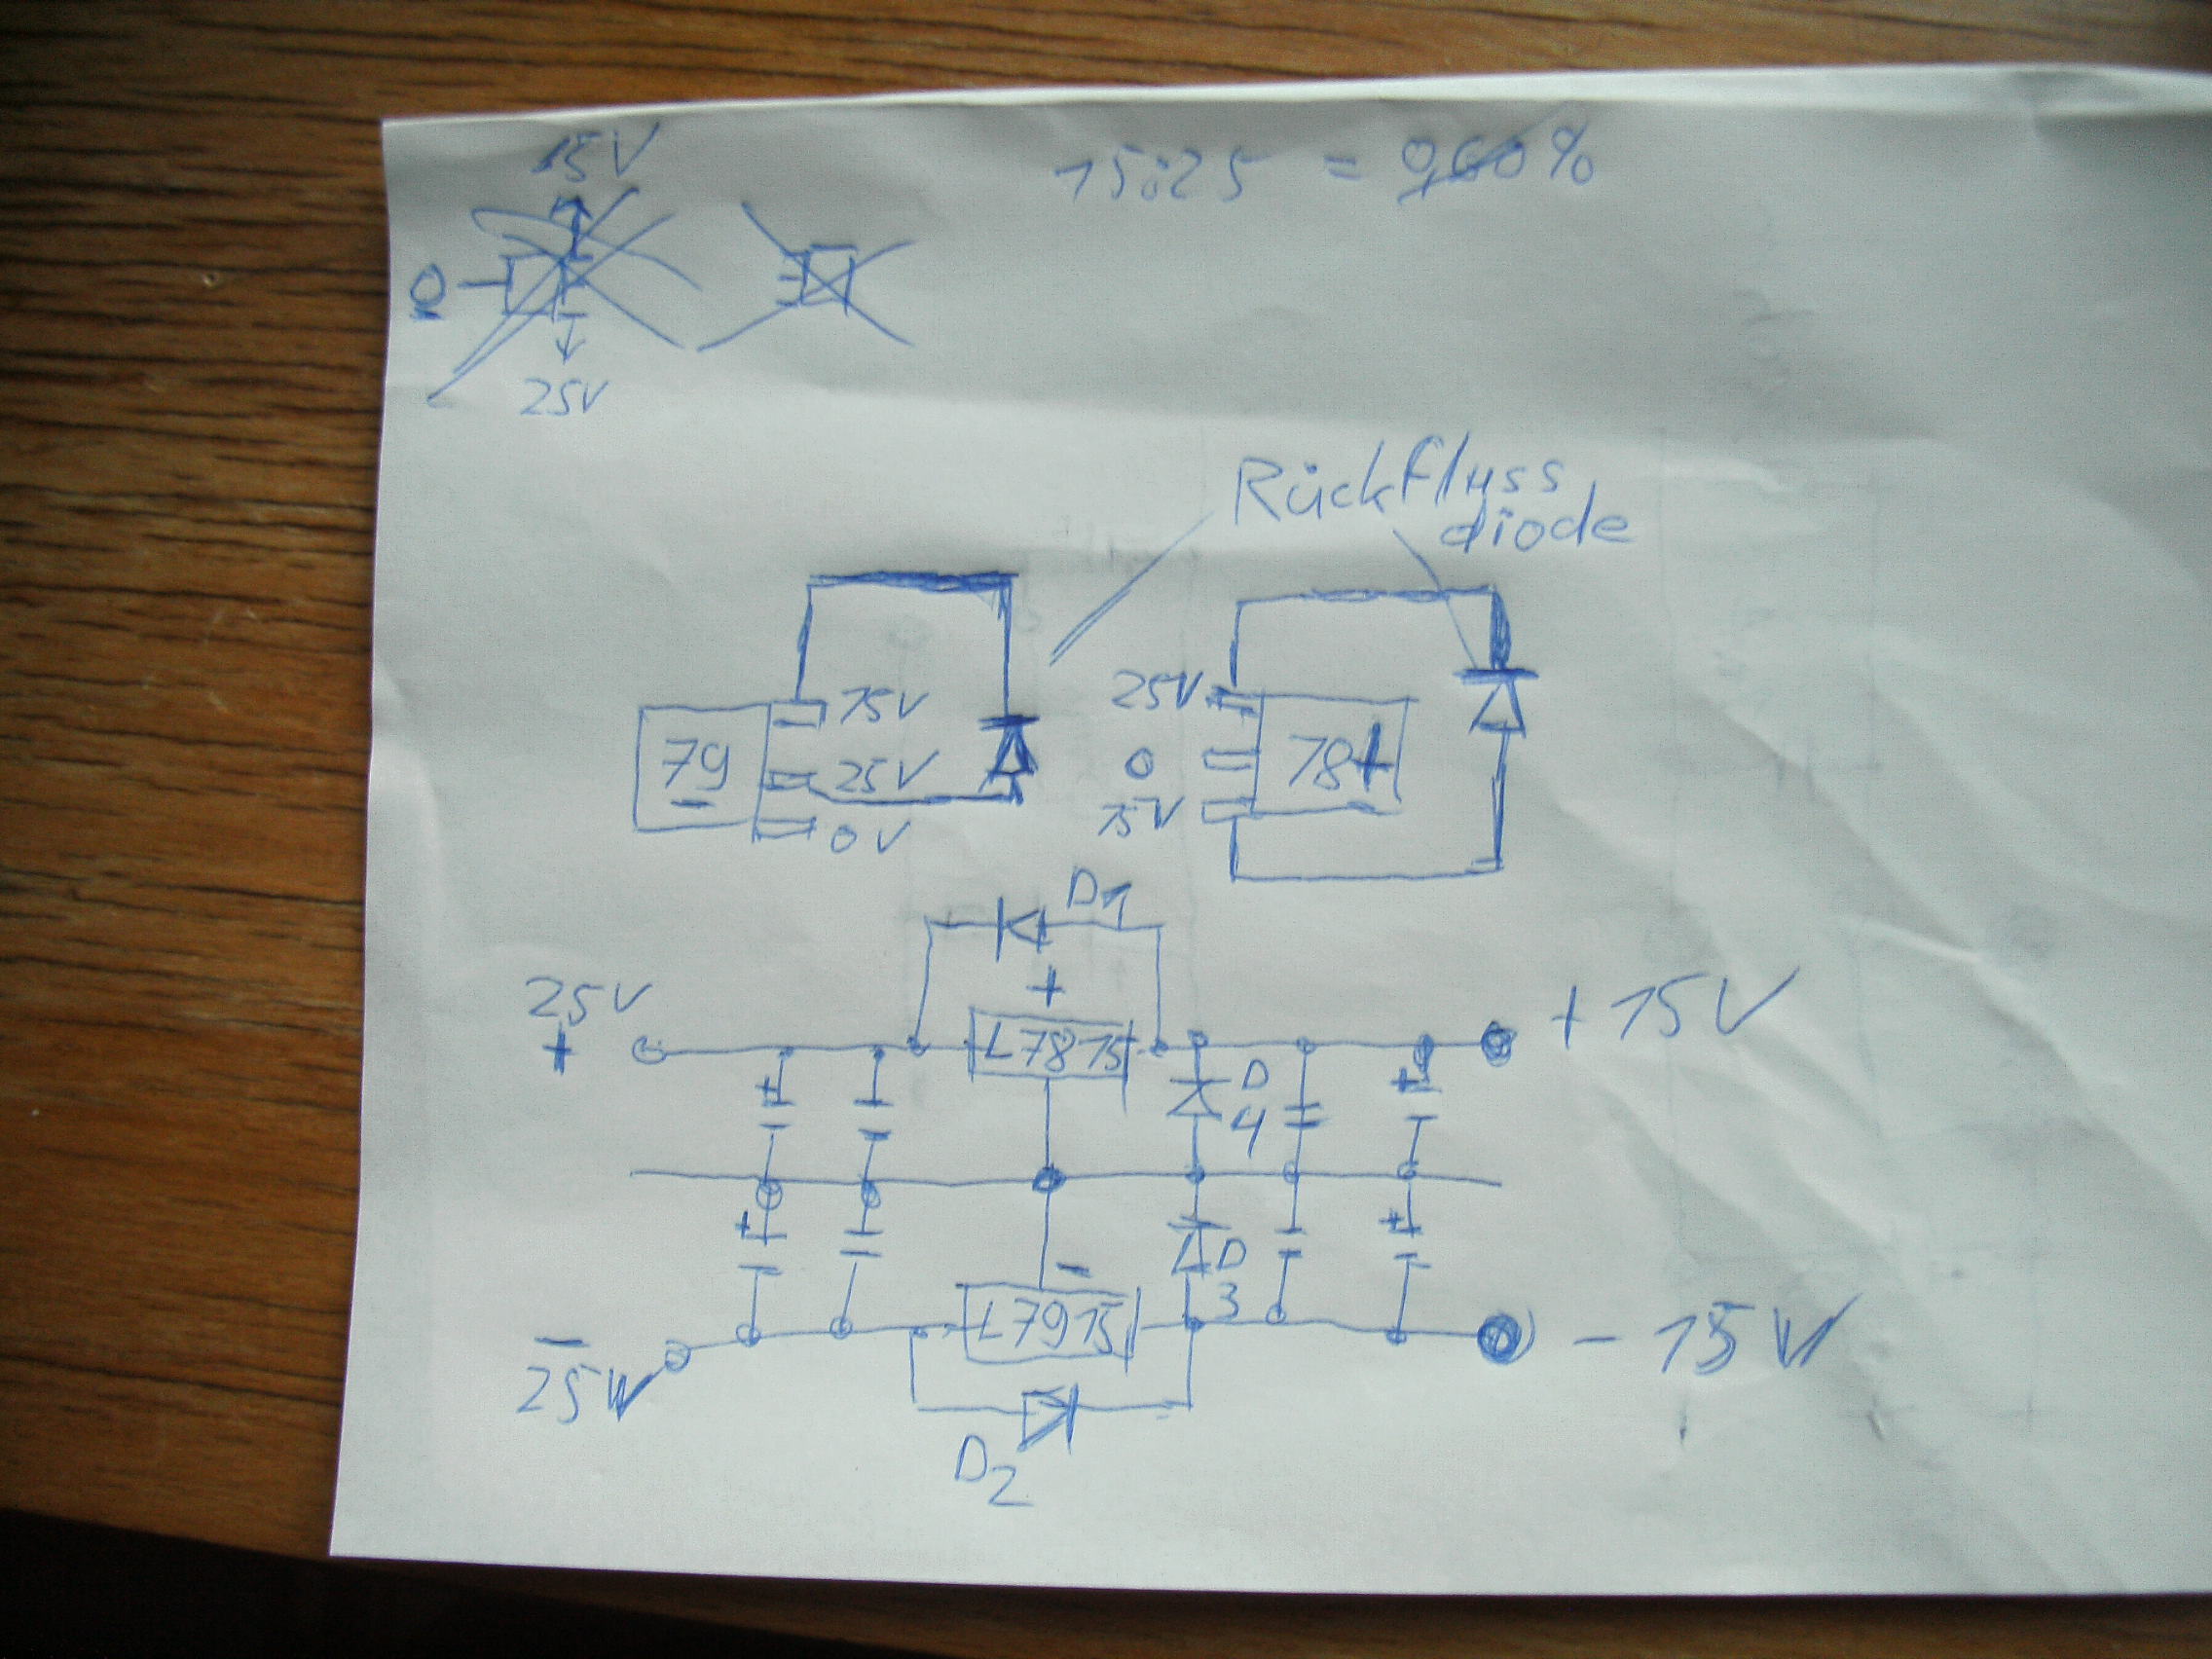 15V
15:25 = 0,60%
0
25V
Rückfluss
diode
15V
25V
79
-
25V
0V
0
78+
15V
D1
+
25V
+
L7815
+15V
+
D
4
+
+
+
-
D
3
L7915
-
25V
-15V
D2